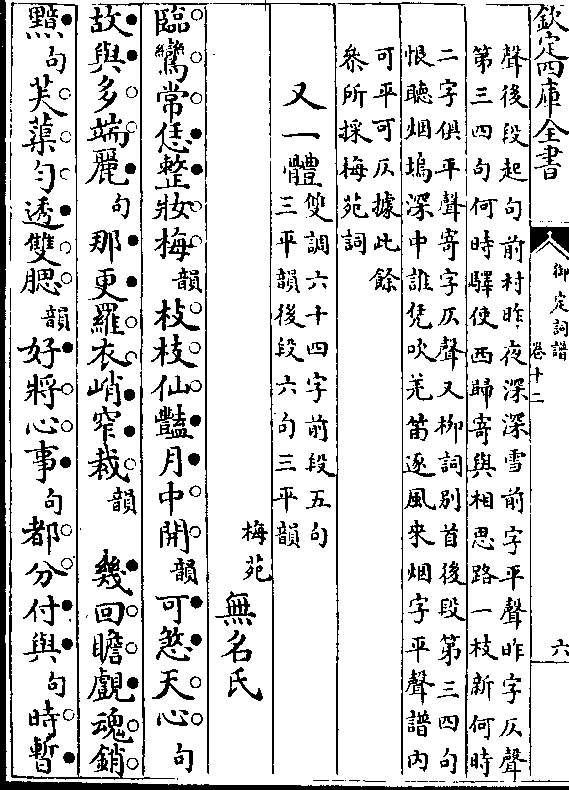 欽定四庫全書
御定詞譜
卷十二
六
聲後段起句前村昨夜深深雪前字平聲昨字仄聲
第三四句何時驛使西歸寄與相思路一枝新何時
二字俱平聲寄字仄聲又柳詞别首後段第三四句
恨聽烟塢深中誰凭吹羌笛逐風來烟字平聲譜内
可平可仄據此餘
叅所採梅苑詞
又一體
雙調六十四字前段五句
三平韻後段六句三平韻
梅苑
無名氏
臨鸞常恁整妝梅韻枝枝仙豔月中開韻可煞天心句
故與多端麗句那更羅衣峭窄裁韻 幾回瞻覷魂銷
黯句芙蕖勻透雙腮韻好將心事句都分付與句時暫